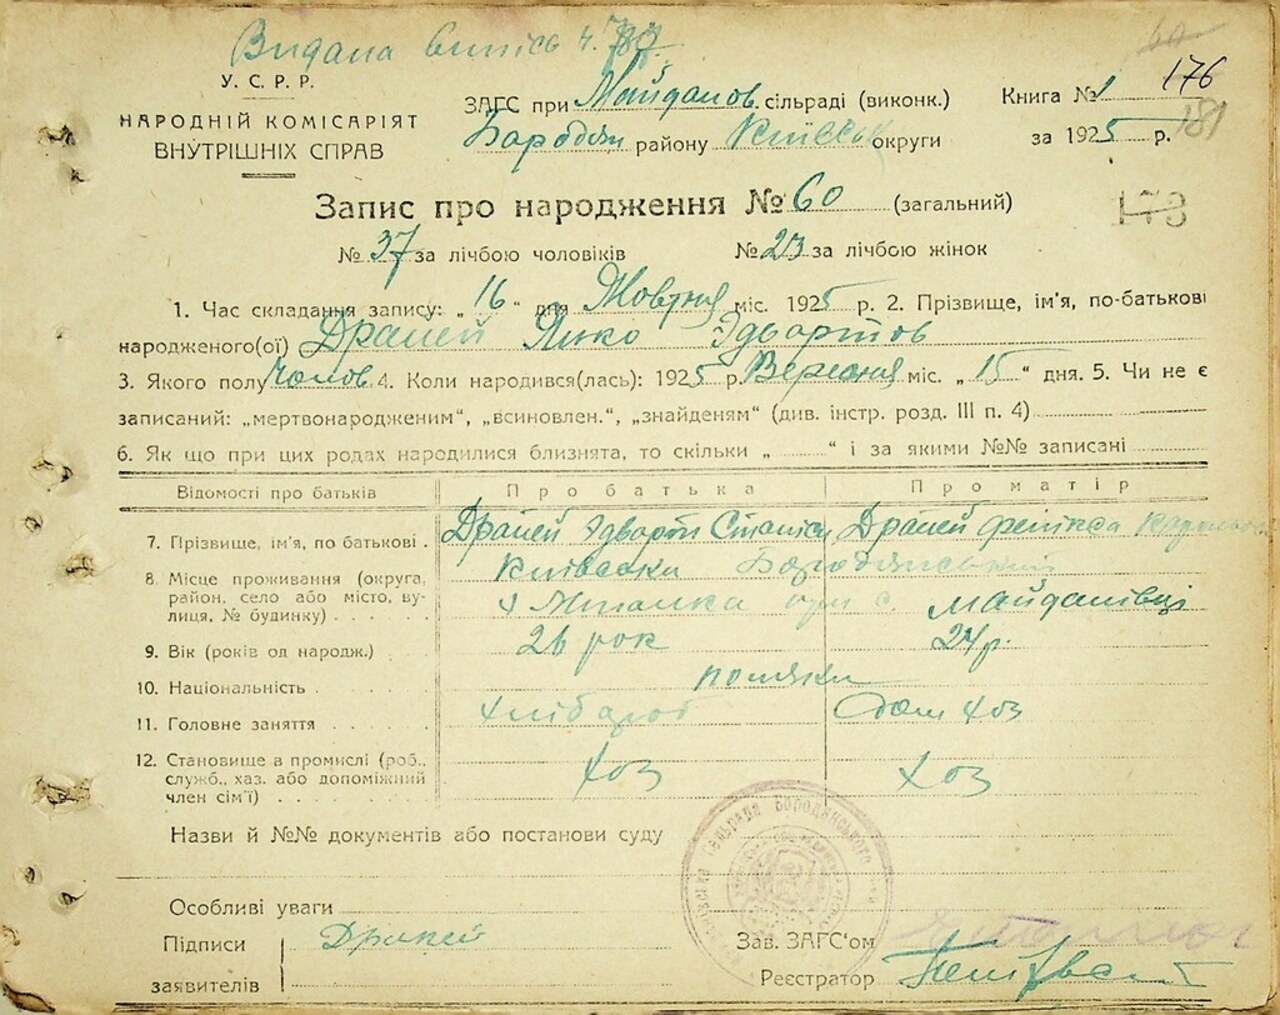 Видана виписъ ч. 787.
176
181
У. С. Р. Р.
НАРОДНІЙ КОМІСАРІЯТ
ВНУТРІШНІХ СПРАВ
ЗАГС при Майданов. сільраді (виконк.)
Книга № 1
Бародян району Київськ округи
за 1925 р.
Запис про народження № 60 (загальний)
173
№ 37 за лічбою чоловіків № 23 за лічбою жінок
1. Час складання запису: „ 16 “ дня Жовтня міс. 1925 р. 2. Прізвище, ім'я, по-батькові
народженого(ої) Драпей Янко Едвартов
3. Якого полу Чолов. 4. Коли народився(лась): 1925 р. Вересня міс. „ 15 “ дня. 5. Чи не є
записаний: „мертвонародженим“, „всиновлен.“, „знайденям“ (див. інстр. розд. III п. 4)
6. Як що при цих родах народилися близнята, то скільки „ “ і за якими №№ записані
Відомості про батьків Про батька Про матір
7. Прізвище, ім'я, по батькові . Драпей Едварт Станісл Драпей Фелікса
8. Місце проживання (округа, Київська Бародянський
район, село або місто, ву-
лиця, № будинку) с. Майданівці
9. Вік (років од народж.) 26 рок 24 р.
10. Національність поляки
11. Головне заняття хлібороб дом хоз
12. Становище в промислі (роб.,
служб., хаз. або допоміжний хоз хоз
член сім'ї)
Назви й №№ документів або постанови суду
Сельрада Бородянського
Особливі уваги
Підписи Драпей
заявителів
Зав. ЗАГС‘ом
Реєстратор